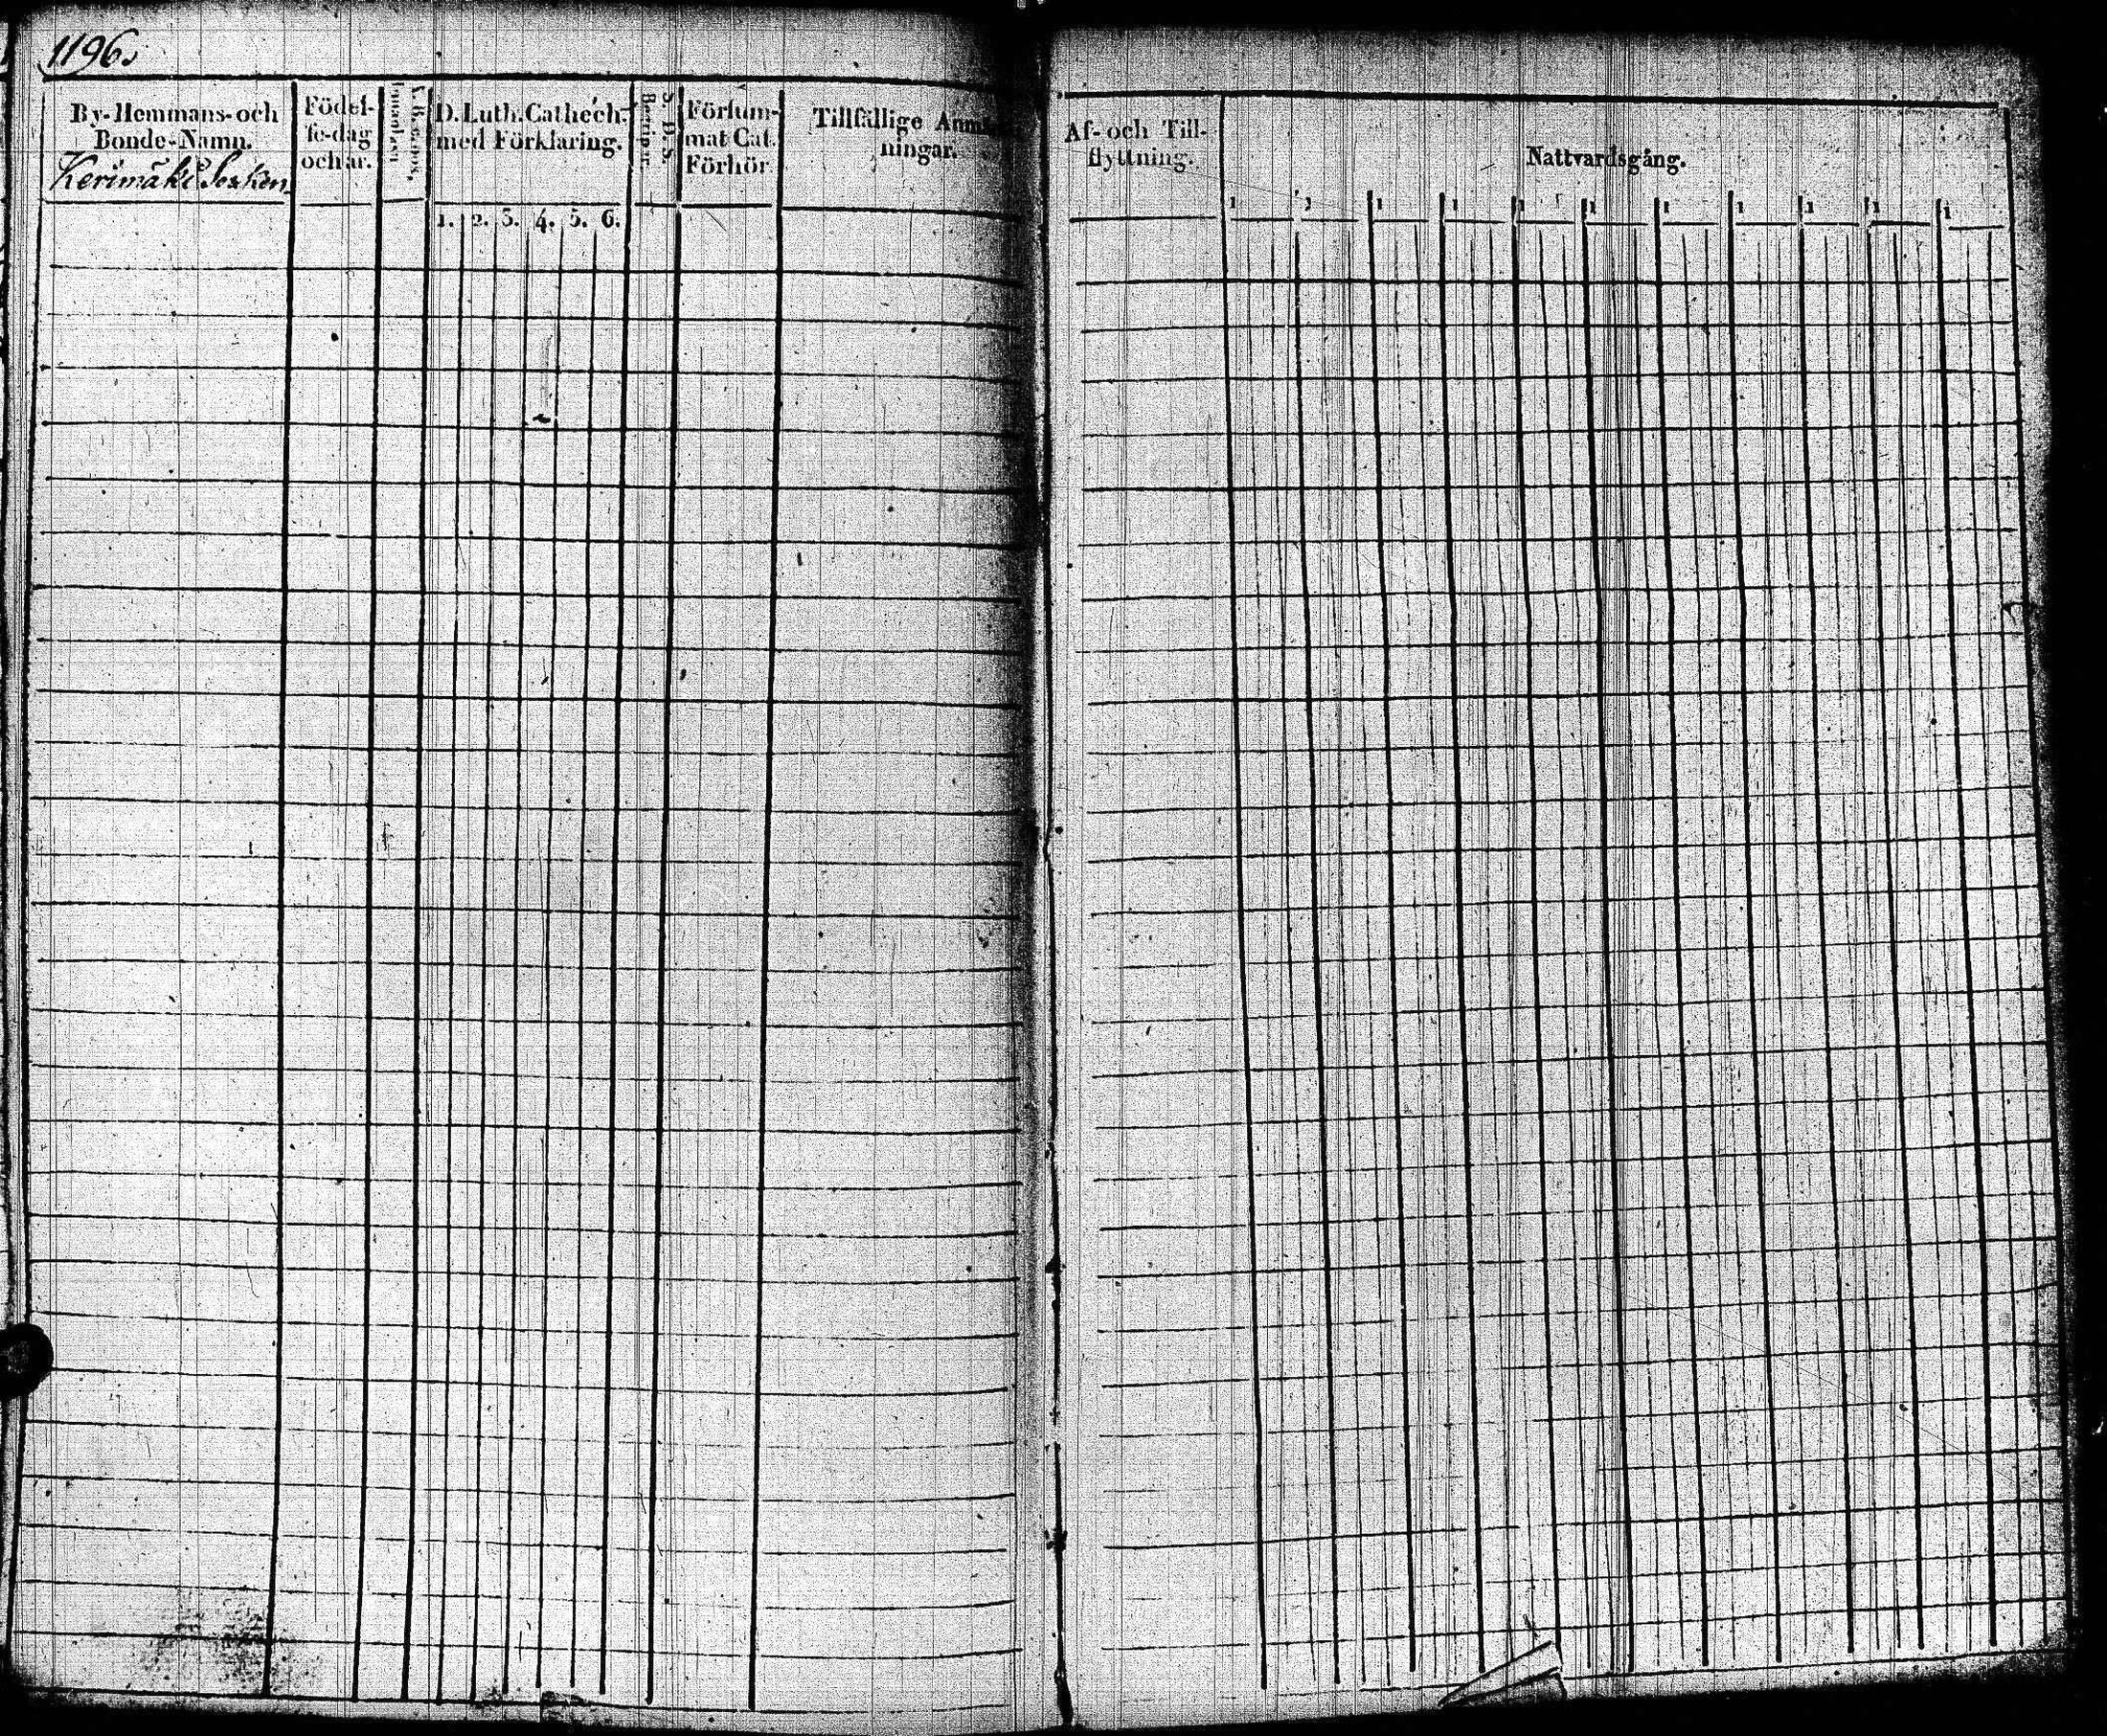 1196.
By-Hemmans- och
Bonde-Namn.
Kerimäki Socken
Födel-
se-dag
och år.
D. Luth. Cathech.
med Förklaring.
1. 2. 3. 4. 5. 6.
Försum-
mat Cat.
Förhör.
Tillfällige
ningar.
Af- och Till-
flyttning.
Nattvardsgång.
1 1 1 1 1 1 1 1 1 1 1